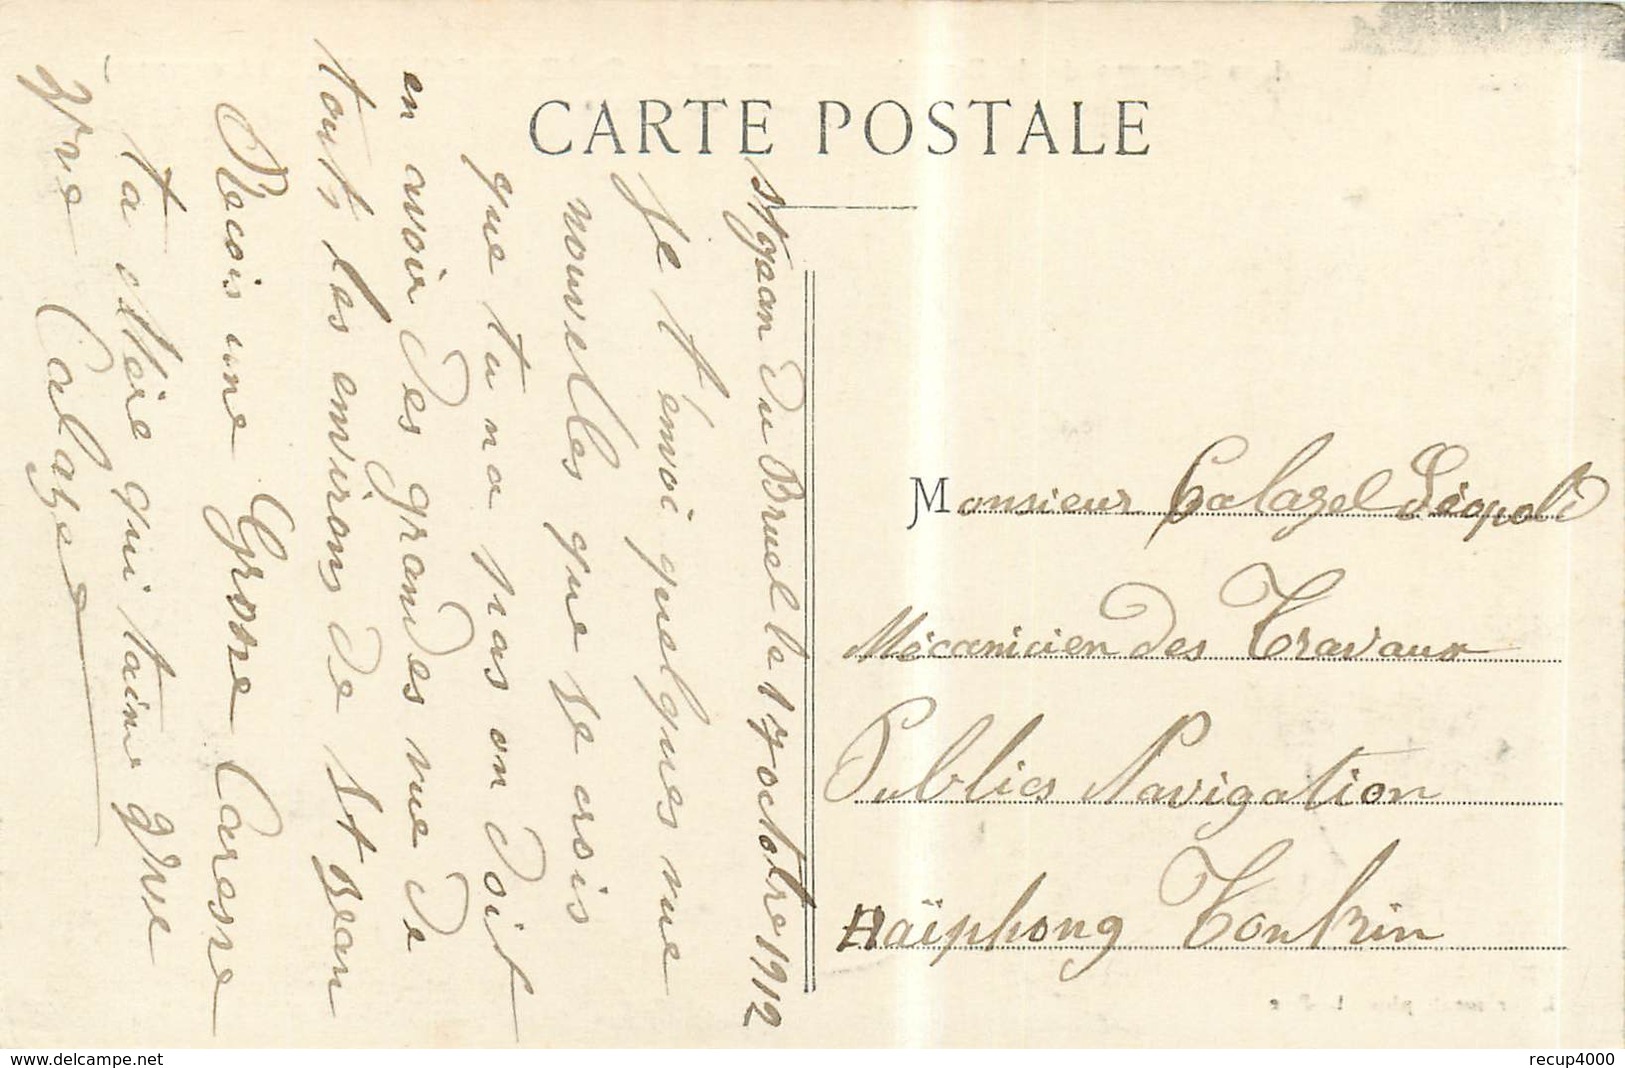 CARTE POSTALE
St jean du Bruel le 17 octobre 1912
Je t'envoi quelques vue
nouvelles que je crois
que tu na pas on doit
en avoir des grandes vue de
tout les environs de St jean
Recois une Grosse Caresse
ta Mère qui taime
Calazel
Monsieur Calazel Léopold
Mécanicien des Travaux
Publics Navigation
Haïphong Tonkin
www.delcampe.net
recup4000